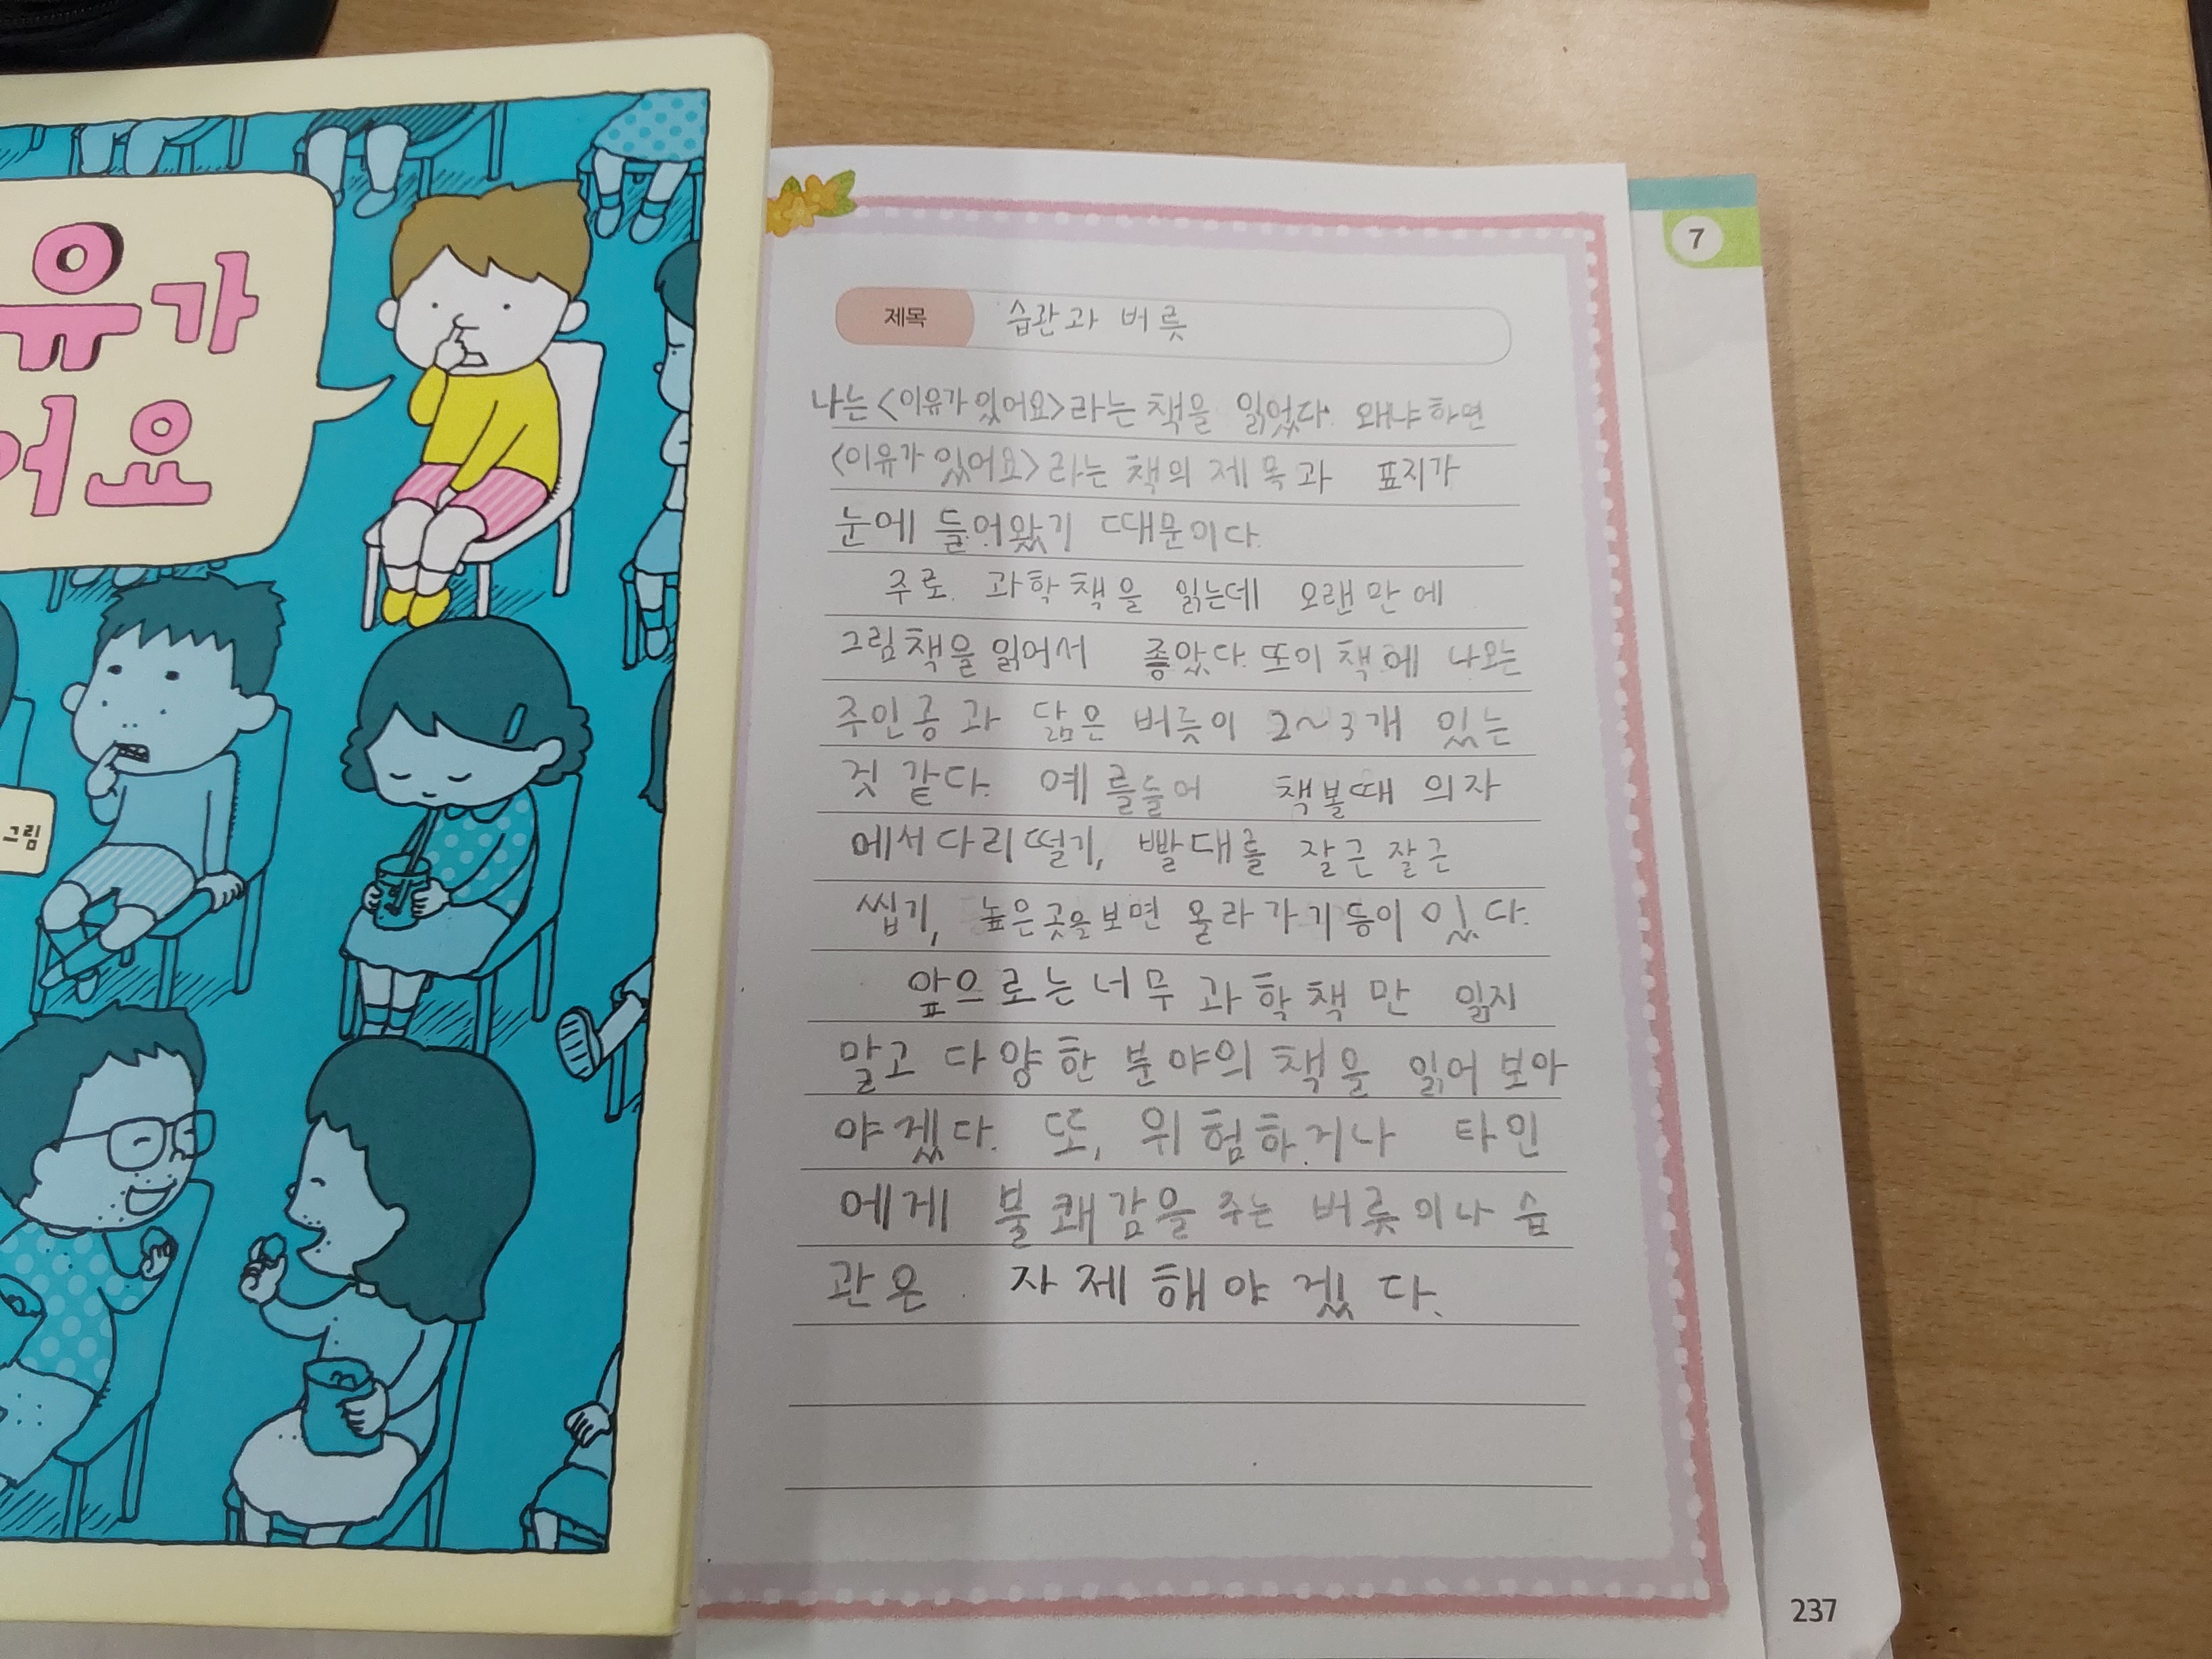 유가
어요
그림
7
제목 습관과 버릇
나는 <이유가 있어요>라는 책을 읽었다. 왜냐하면
<이유가 있어요>라는 책의 제목과 표지가
눈에 들어왔기 때문이다.
주로 과학책을 읽는데 오랜만에
그림책을 읽어서 좋았다. 또 이 책에 나오는
주인공과 닮은 버릇이 2~3개 있는
것 같다. 예를들어 책볼때 의자
에서 다리떨기, 빨대를 잘근잘근
씹기, 높은곳을보면 올라가기 등이 있다.
앞으로는 너무 과학책만 읽지
말고 다양한 분야의 책을 읽어 보아
야겠다. 또, 위험하거나 타인
에게 불쾌감을 주는 버릇이나 습
관은 자제해야겠다.
237